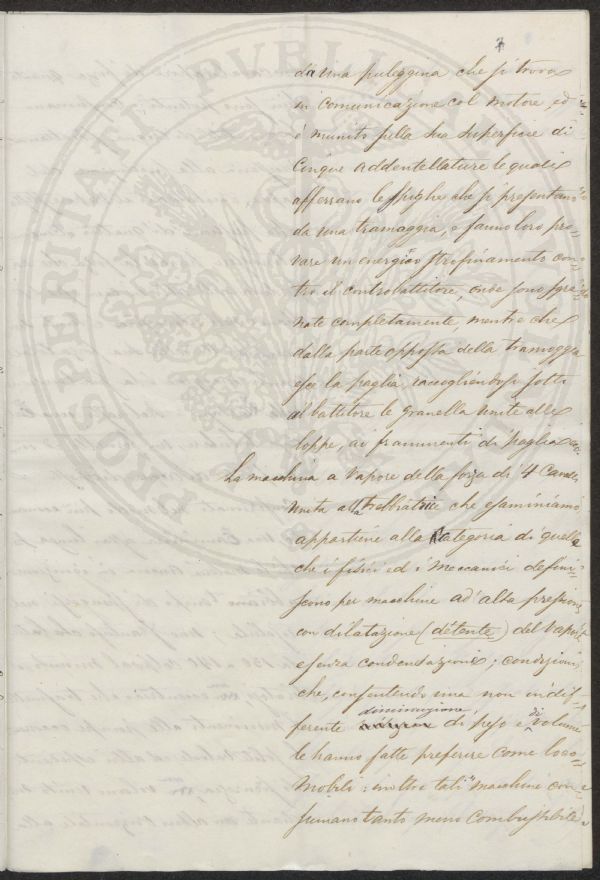 7
da una puleggina che si trova
in comunicazione col motore, ed
è munito sulla sua superficie di
Cinque addentellature le quali
afferrano le spighe che si presentano
da una tramoggia, e fanno loro pro-
vare un energico strofinamento con-
tro il controbattitore, onde sono sgra-
nate completamente, mentre che
dalla parte opposta della tramoggia
esce la paglia, raccogliendosi sotto
al battitore le granella unite alle
loppe, ai frammenti di paglia
La macchina a vapore della forza di 4 Cavalli
unita alla trebbiatrice che esaminiamo
appartiene alla Categoria di quelle
che i fisici ed i Meccanici defini-
scono per macchine ad alta pressione
con dilatazione (détente) del vapore
e senza condensazione; condizioni,
che, consentendo una non indif-
ferente diminuzione di peso e di volume
le hanno fatte preferire come loco-
mobili: inoltre tali macchine con-
sumano tanto meno combustibile
PROSPERITATI PUBLICAE